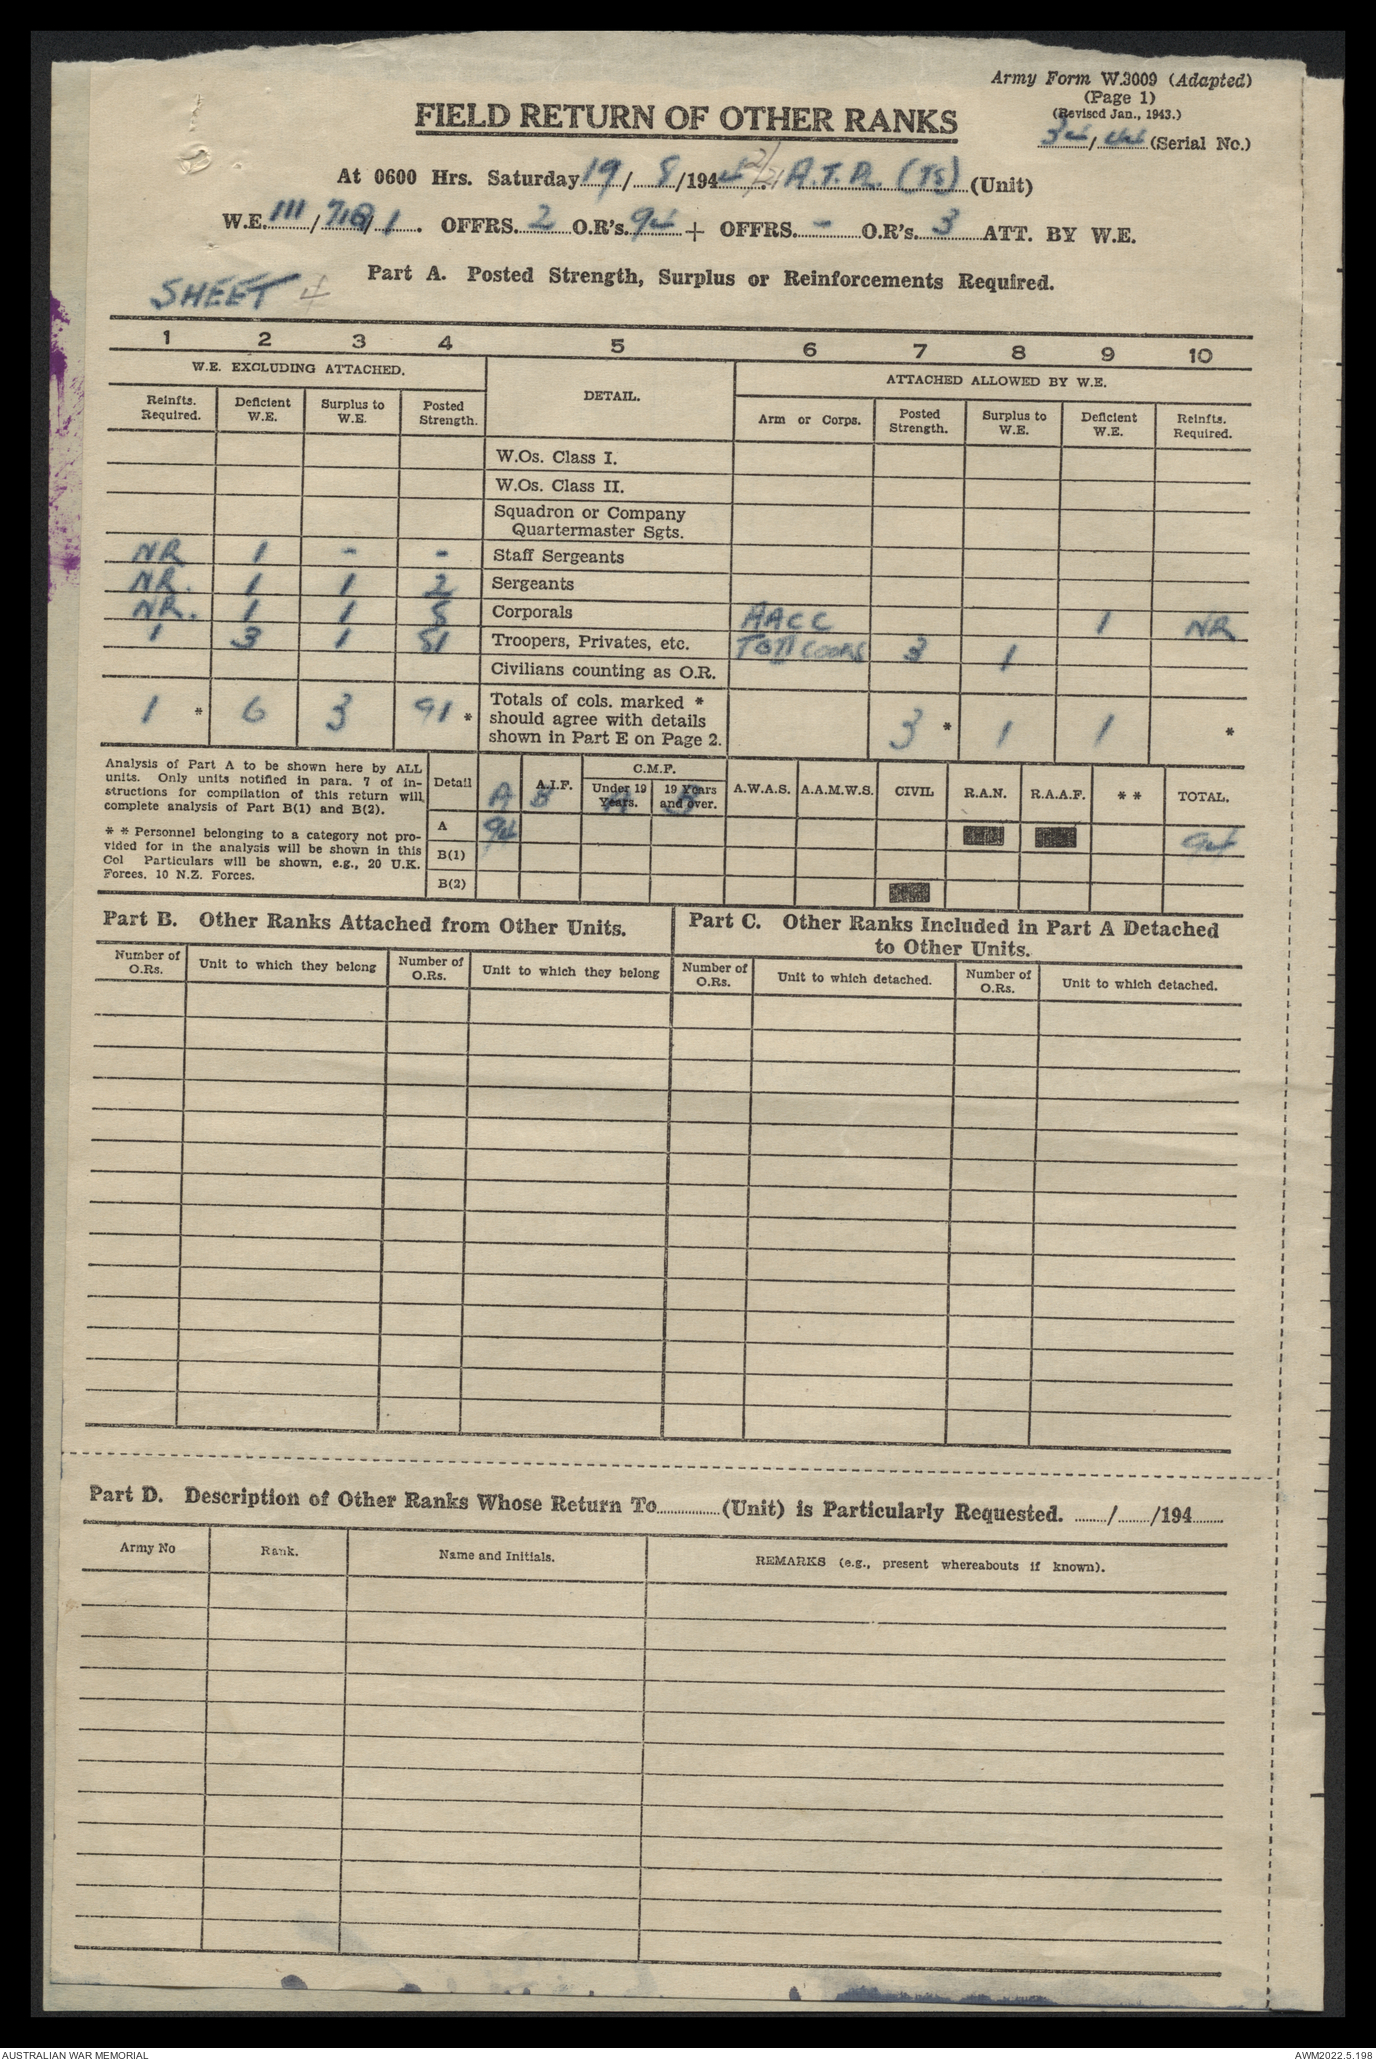 Army Form W.3009 (Adapted)
(Page 1)
(Revised Jan., 1943.)
34/44 (Serial No.)
FIELD RETURN OF OTHER RANKS
At 0600 Hrs. Saturday 19/8/1944. 2/21 A.T.P. (TS) (Unit)
W.E. III/718/1. OFFRS. 2 O.R's. 94 + OFFRS. - O.R's. 3 ATT. BY W.E.
Part A. Posted Strength, Surplus or Reinforcements Required.
SHEET 4
1 2 3 4 5 6 7 8 9 10
W.E. EXCLUDING ATTACHED. DETAIL. ATTACHED ALLOWED BY W.E.
Reinfts. Required. Deficient W.E. Surplus to W.E. Posted Strength. Arm or Corps. Posted Strength. Surplus to W.E. Deficient W.E. Reinfts. Required.
W.Os. Class I.
W.Os. Class II.
Squadron or Company
Quartermaster Sgts.
NR 1 - - Staff Sergeants
NR. 1 1 2 Sergeants
NR. 1 1 5 Corporals AACC 1 NR
1 3 1 81 Troopers, Privates, etc. 3 1
Civilians counting as O.R.
Totals of cols. marked *
1 * 6 3 91 * should agree with details 3 * 1 1 *
shown in Part E on Page 2.
Analysis of Part A to be shown here by ALL
units. Only units notified in para. 7 of in-
structions for compilation of this return will
complete analysis of Part B(1) and B(2).
* * Personnel belonging to a category not pro-
vided for in the analysis will be shown in this
Col Particulars will be shown, e.g., 20 U.K.
Forces, 10 N.Z. Forces.
Detail A A.I.F. B C.M.F. Under 19 Years. A 19 Years and over. B A.W.A.S. A.A.M.W.S. CIVIL R.A.N. R.A.A.F. * * TOTAL.
A 94 94
B(1)
B(2)
Part B. Other Ranks Attached from Other Units.
Part C. Other Ranks Included in Part A Detached
to Other Units.
Number of O.Rs. Unit to which they belong Number of O.Rs. Unit to which they belong Number of O.Rs. Unit to which detached. Number of O.Rs. Unit to which detached.
Part D. Description of Other Ranks Whose Return To........(Unit) is Particularly Requested. ....../....../194......
Army No Rank. Name and Initials. REMARKS (e.g., present whereabouts if known).
AUSTRALIAN WAR MEMORIAL
AWM2022.5.198